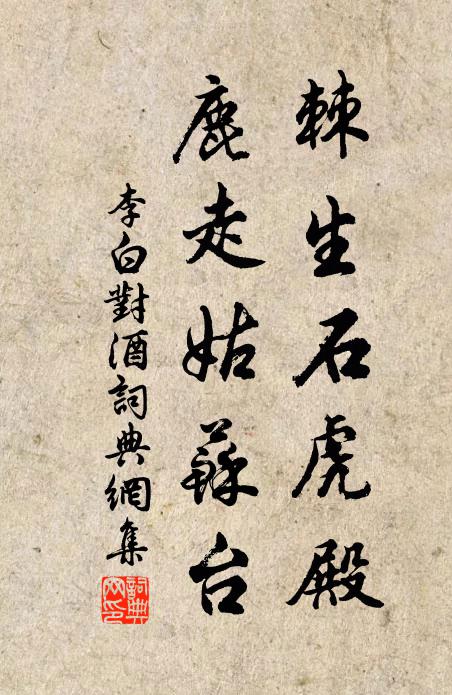 棘生石虎殿
鹿走姑蘇台
李白對酒詞典網集
詞典网印